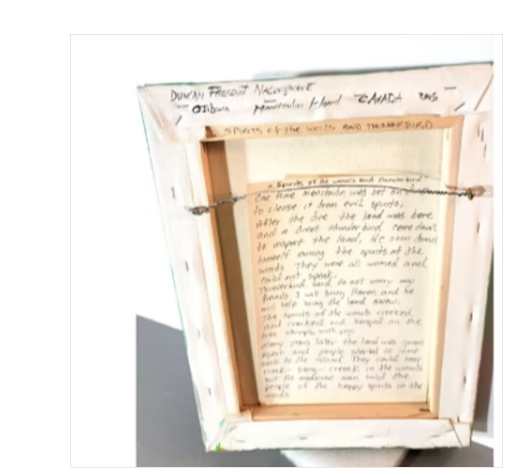 DUNCAN
Ojibwa Manitoulin Island CANADA
SPIRITS of the WOODS AND THUNDERBIRD
Spirits of the woods and thunderbird
One time Manitoulin was set on
to cleanse it from evil spirits,
After the fire the land was bare
and a great thunderbird came down
to inspect the land, He soon found
himself among the spirits of the
woods They were all worried and
could not speak.
Thunderbird said do not worry my
friends I will bring Raven and he
will help bring the land
The spirits of the woods creeked
and cracked and banged on the
tree stumps with joy.
Many years later the land was green
again and people started to come
back to the island They could hear
crack- bang- creeek in the woods
but the medicine man told the
people of the happy spirits in the
woods